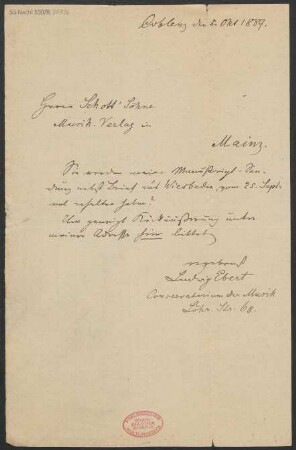 Coblenz den 5. Okt 1889.
Herren Schott' Söhne
Musik-Verlag in
Mainz.
Sie werden meine Manuscript-Sen-
dung nebst Brief aus Wiesbaden vom 25. Sept.
wol erhalten haben?
Um geneigte Rückäusserung unter
meiner Adresse hier bittet
ergebenst
Ludwig Ebert
Conservatorium der Musik
Löhr. Str. 68.